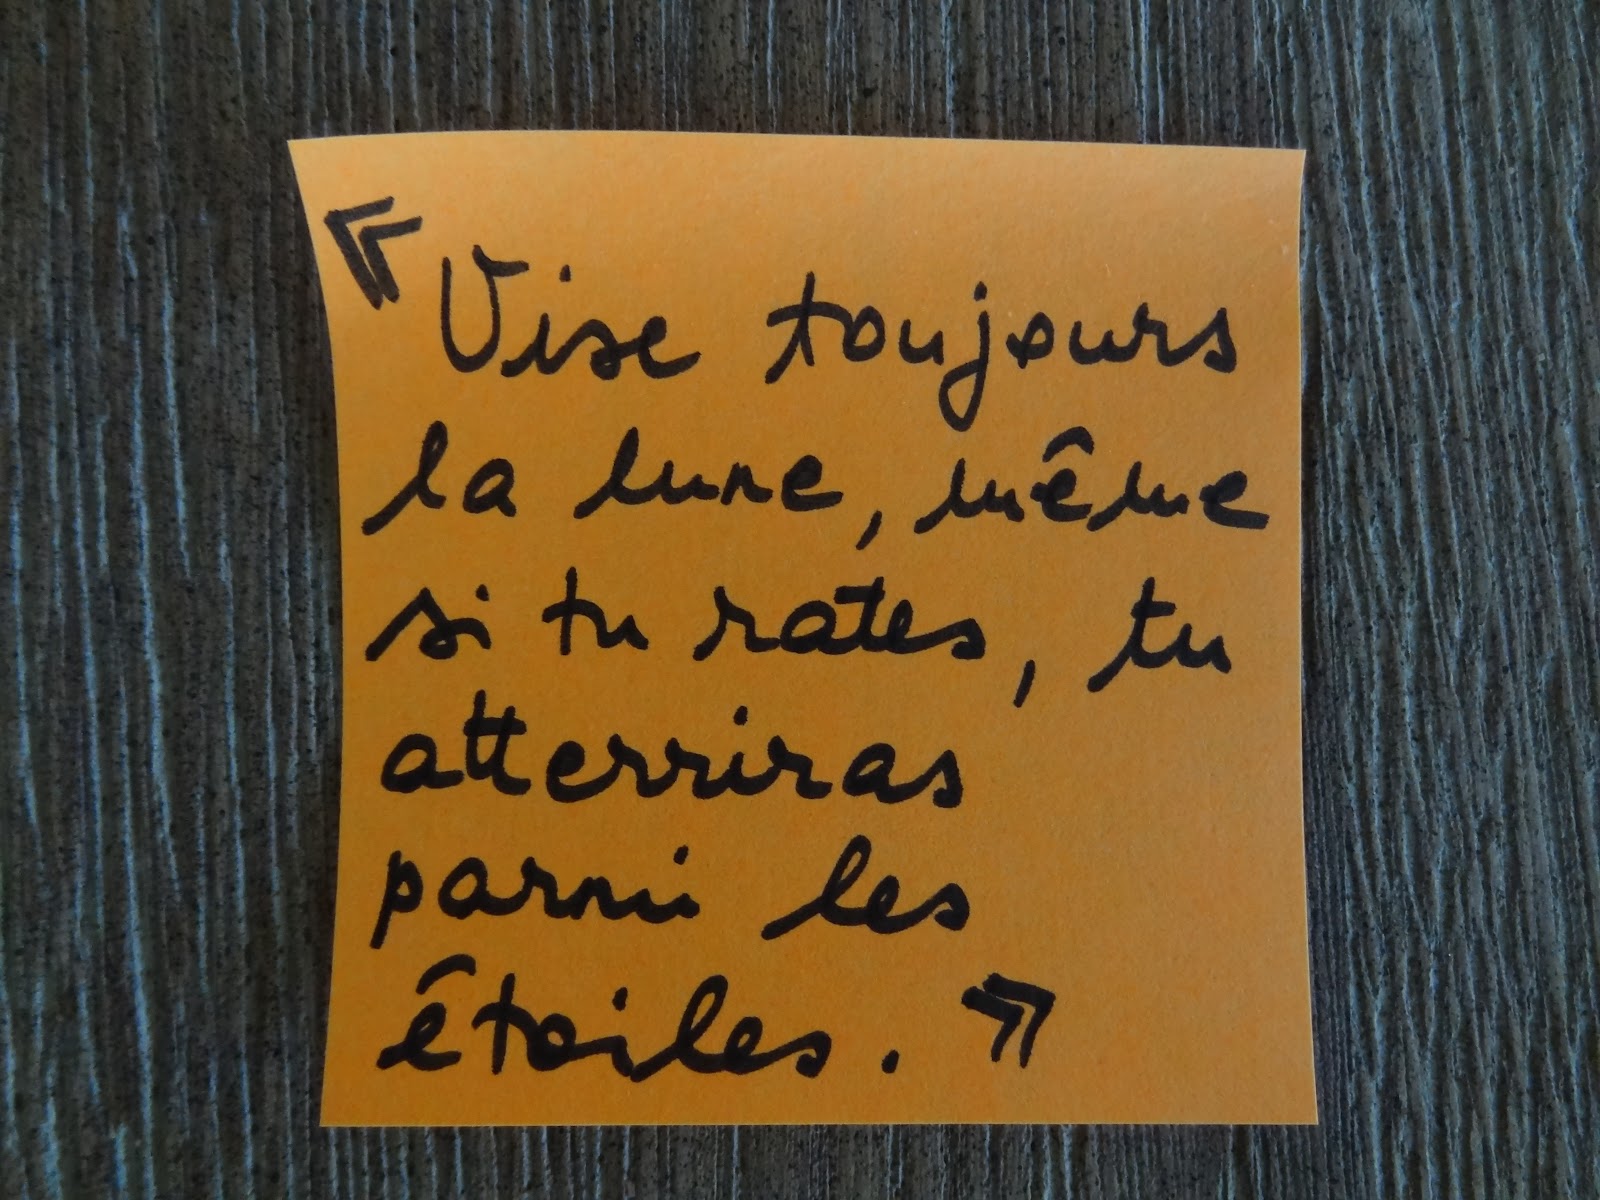 « Vise toujours
la lune, même
si tu rates, tu
atterriras
parmi les
étoiles. »